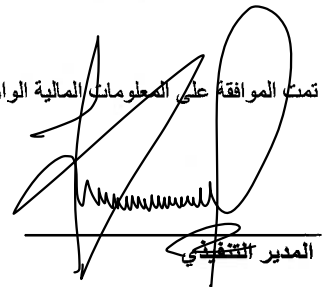 تمت الموافقة على المعلومات المالية
المدير التنفيذي